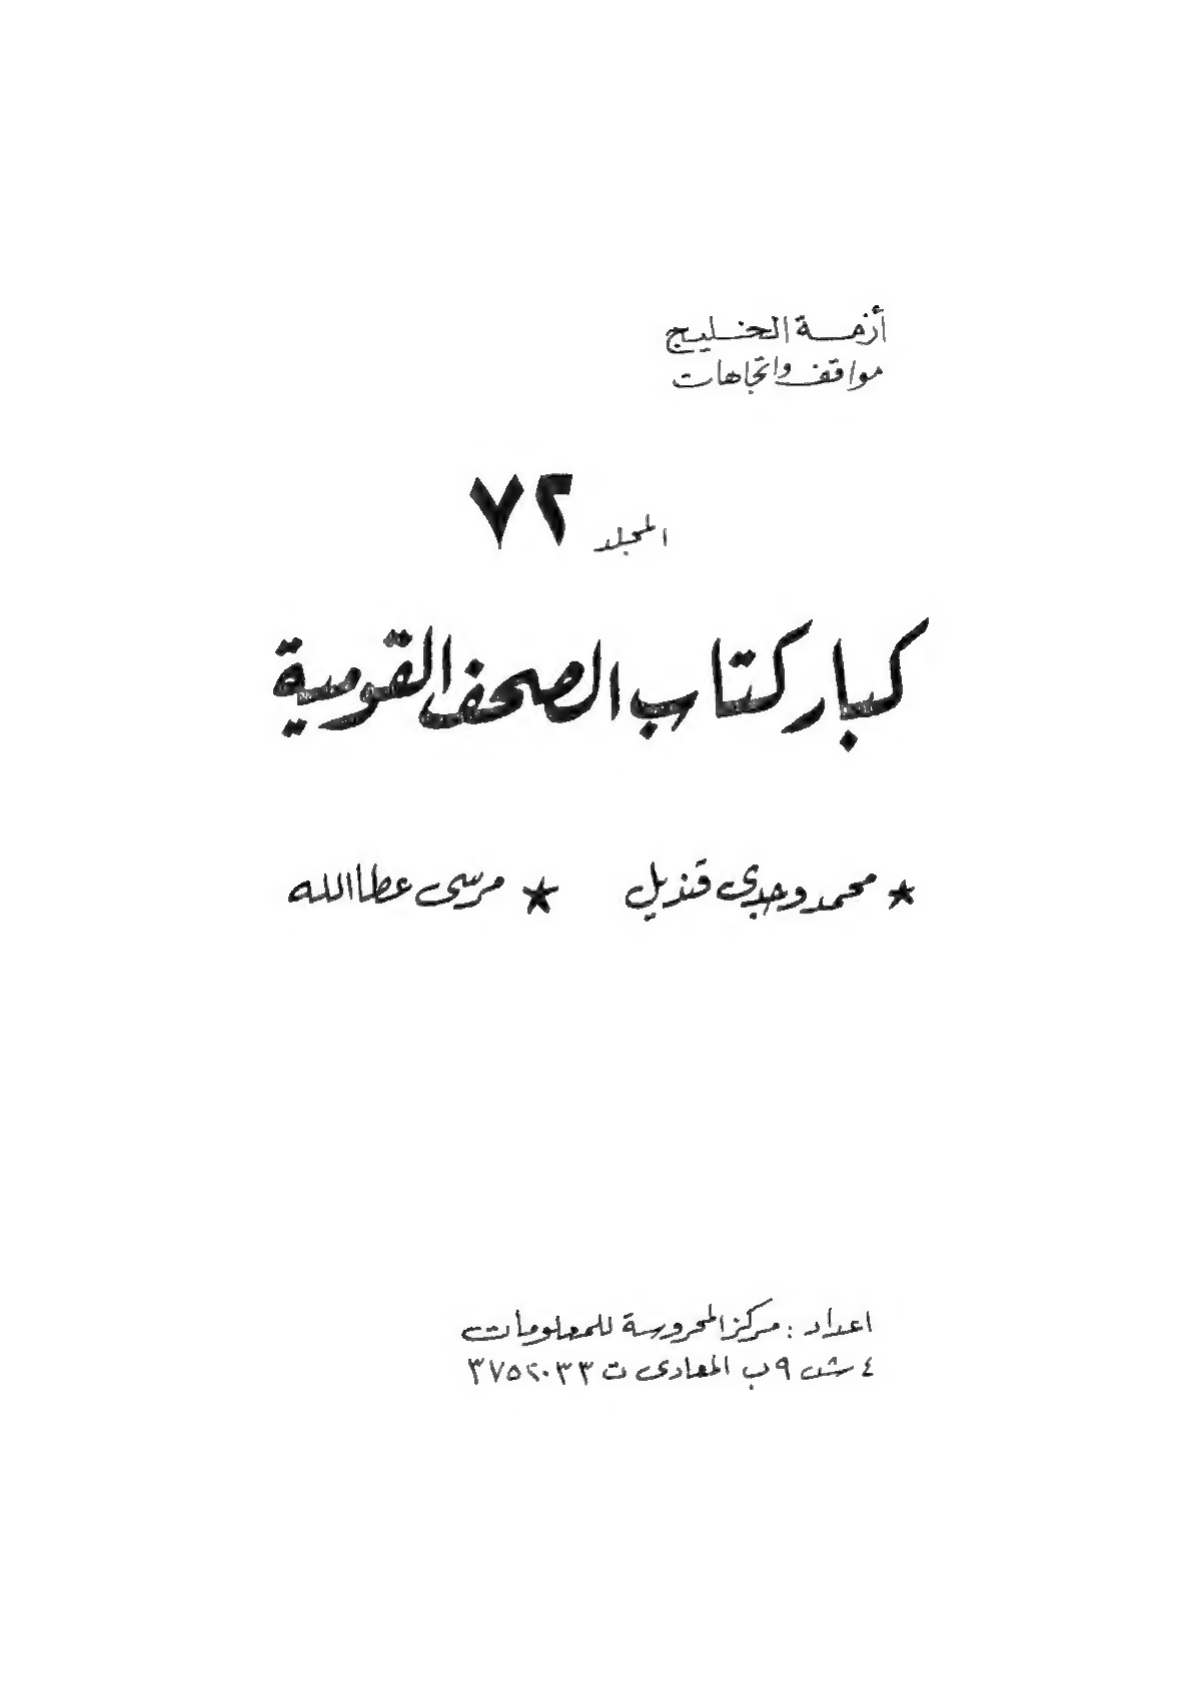 أزمة الخليج
مواقف واتجاهات
المجلد ٧٢
كبار كتاب الصحف القومية
★ محمد وجدى قنديل ★ مرسى عطا الله
اعداد : مركز المحروسة للمعلومات
٤ ش ٩ب المعادى ت ٣٧٥٢٠٣٣